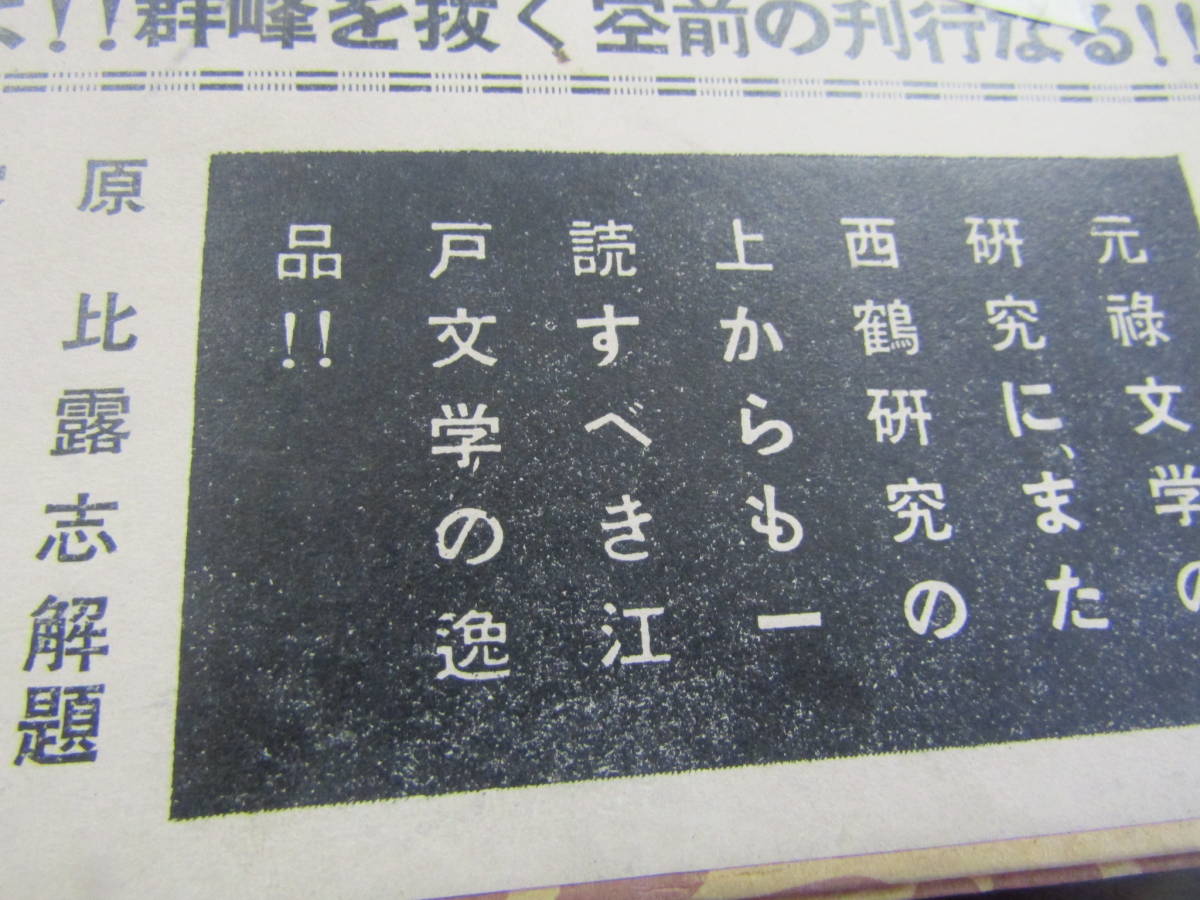 !!群峰を抜く空前の刊行なる!!
元禄文学の
研究に、また
西鶴研究の
上からも一
読すべき江
戸文学の逸
品!!
原比露志解題